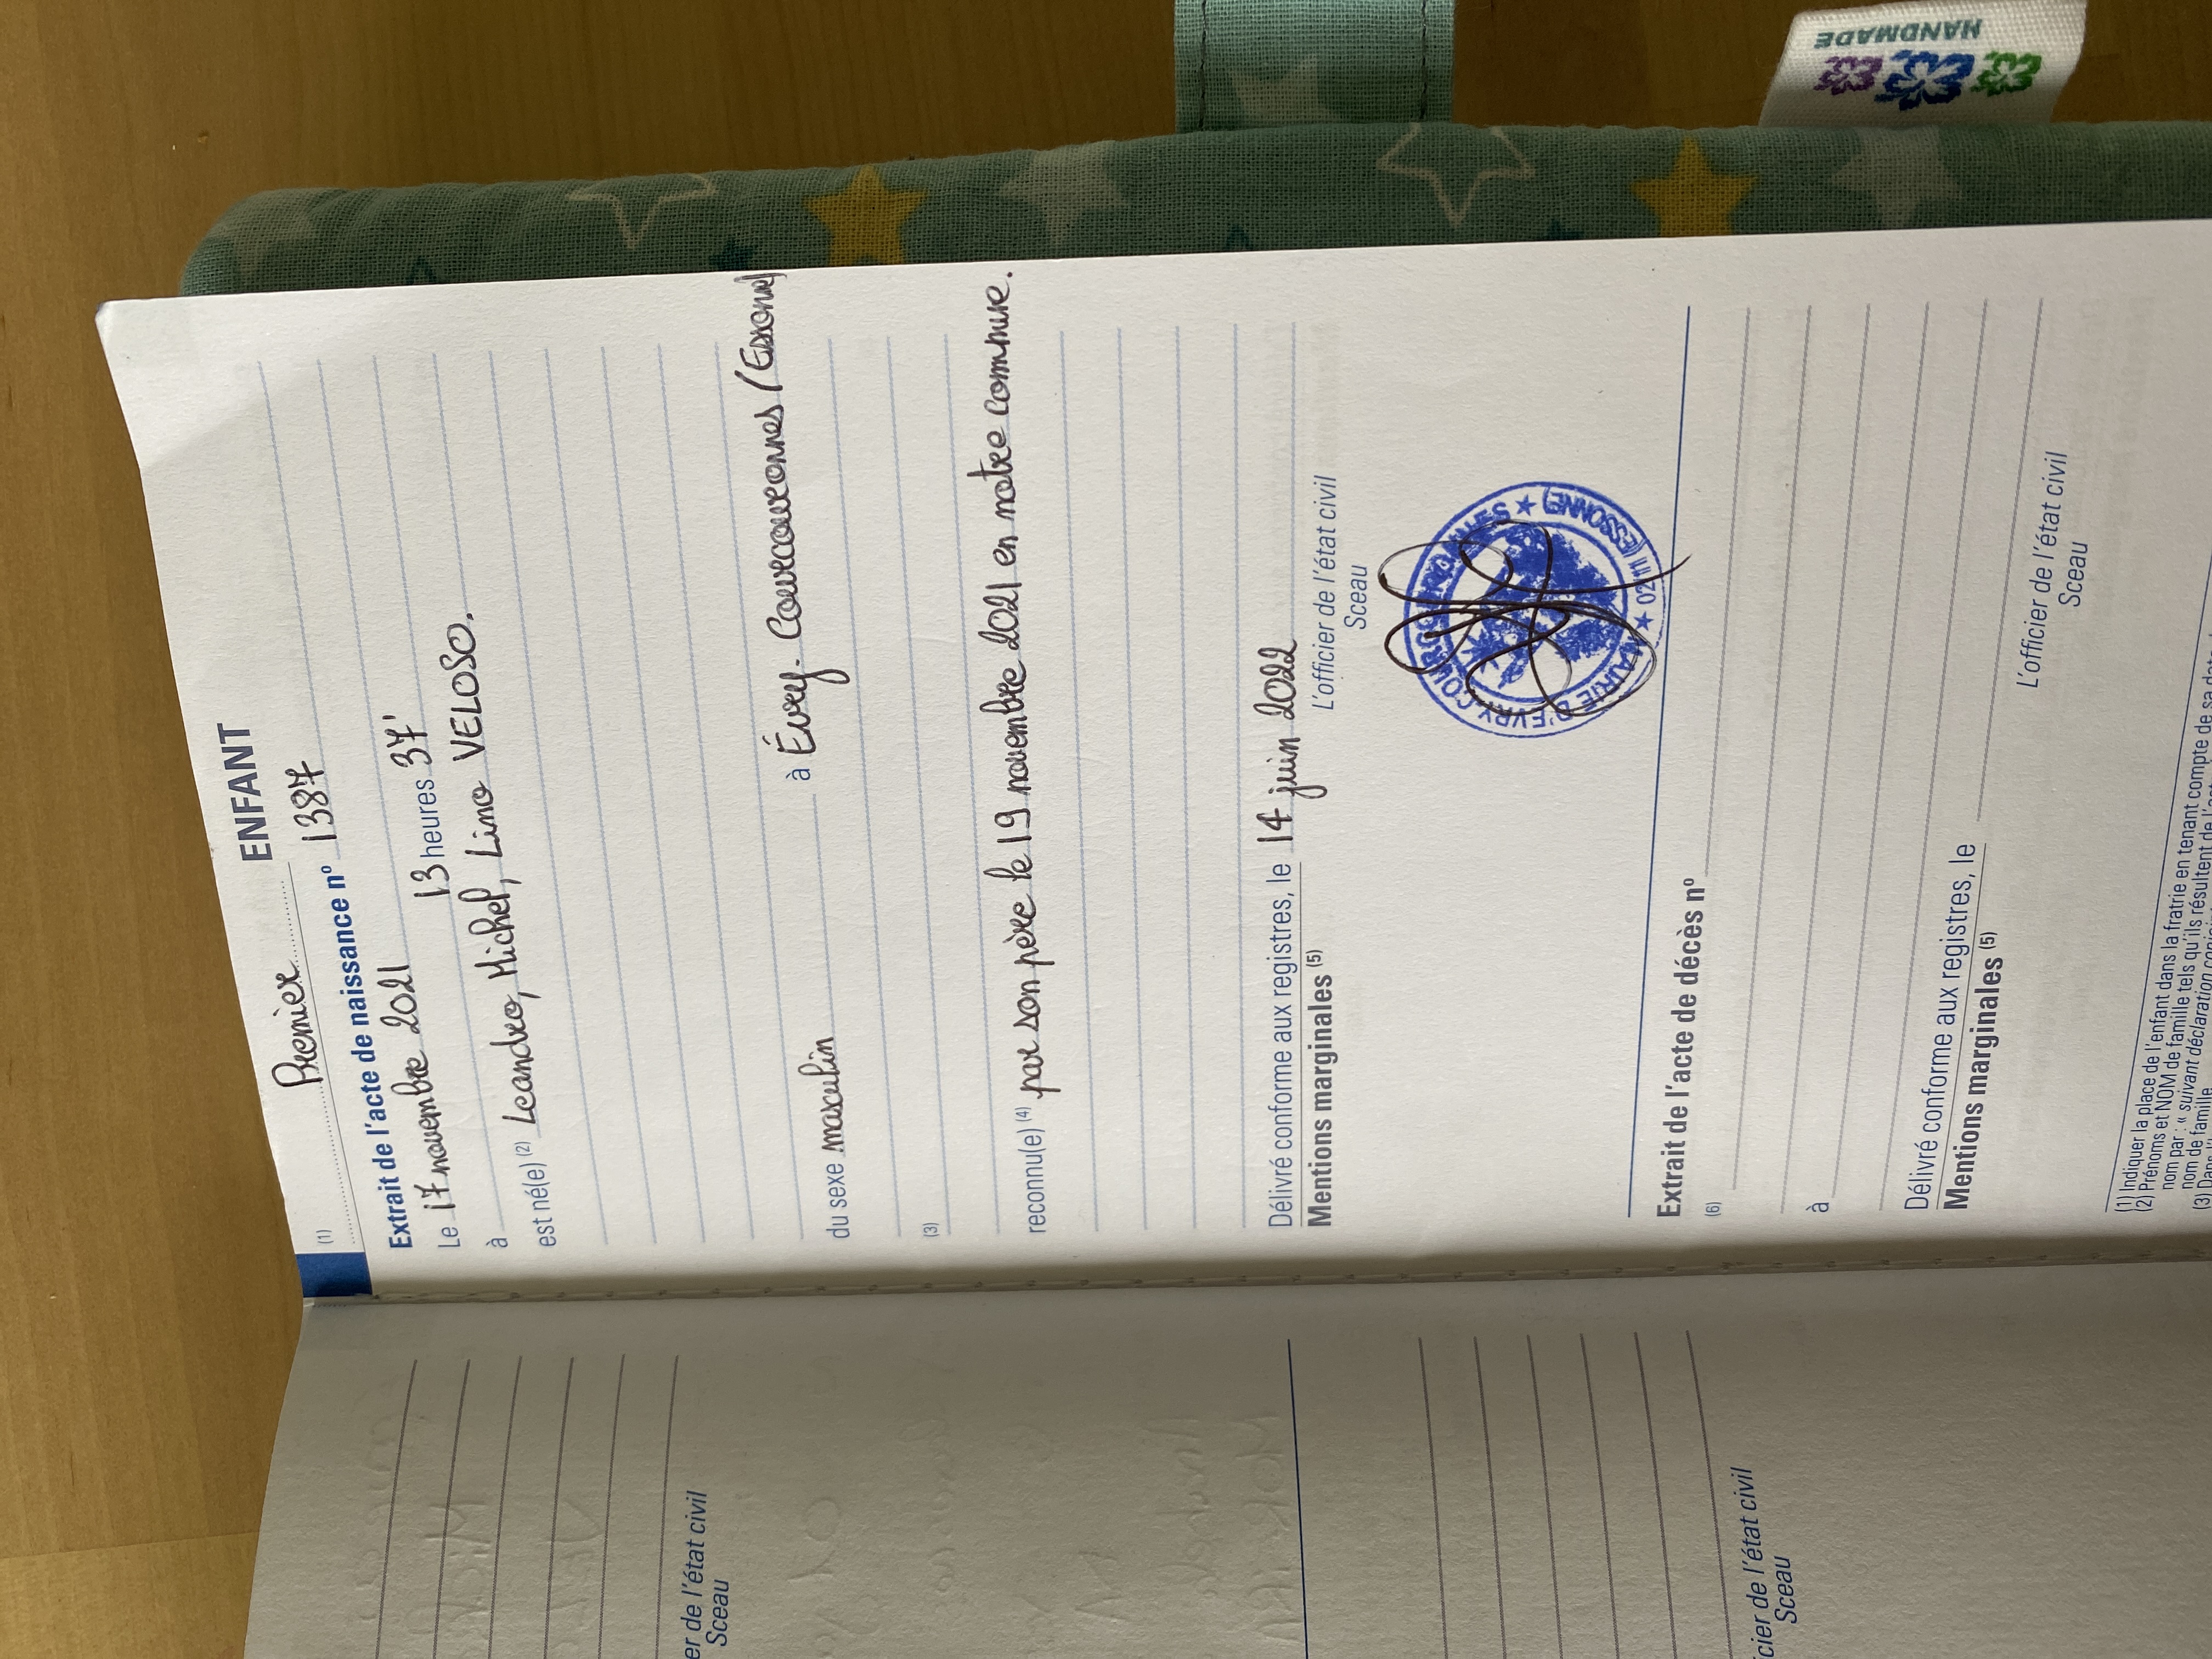 Premier ENFANT
(1)
Extrait de l'acte de naissance nº 1387
Le 17 novembre 2021
à 13 heures 37'
est né(e) (2) Leandro, Michel, Lino VELOSO.
du sexe masculin à Évry-Courcouronnes (Essonne)
(3)
reconnu(e) (4) par son père le 19 novembre 2021 en notre commune.
Délivré conforme aux registres, le 14 juin 2022
Mentions marginales (5)
L'officier de l'état civil
Sceau
MAIRIE D'EVRY COURCOURONNES ★ (ESSONNE) 
★ 02 111
Extrait de l'acte de décès nº
(6)
à
Délivré conforme aux registres, le
Mentions marginales (5)
L'officier de l'état civil
Sceau
(1) Indiquer la place de l'enfant dans la fratrie en tenant compte de sa date
(2) Prénoms et NOM de famille tels qu'ils résultent de l'
nom par : « suivant déclaration conjointe
nom de famille
(3) Dans l'
er de l'état civil
Sceau
cier de l'état civil
Sceau
HANDMADE